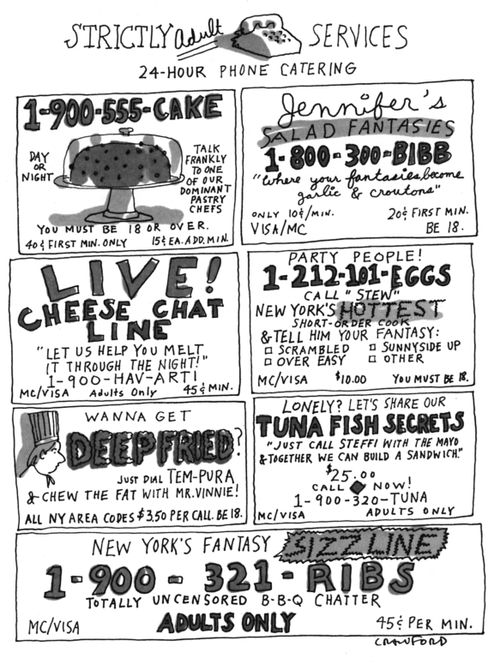 STRICTLY adult SERVICES
24-HOUR PHONE CATERING
1-900-555-CAKE
DAY
OR
NIGHT
TALK
FRANKLY
TO ONE
OF OUR
DOMINANT
PASTRY
CHEFS
YOU MUST BE 18 OR OVER.
40¢ FIRST MIN. ONLY 15¢ EA. ADD. MIN.
Jennifer's
SALAD FANTASIES
1-800-300-BIBB
"Where your fantasies become
garlic & croutons"
ONLY 10¢/MIN. 20¢ FIRST MIN.
VISA/MC BE 18.
LIVE!
CHEESE CHAT
LINE
"LET US HELP YOU MELT
IT THROUGH THE NIGHT!"
1-900-HAV-ARTI
MC/VISA Adults Only 45¢ MIN.
PARTY PEOPLE!
1-212-101-EGGS
CALL "STEW"
NEW YORK'S HOTTEST
SHORT-ORDER COOK
& TELL HIM YOUR FANTASY:
□ SCRAMBLED □ SUNNYSIDE UP
□ OVER EASY □ OTHER
MC/VISA $10.00 YOU MUST BE 18.
WANNA GET
DEEP FRIED?
JUST DIAL TEM-PURA
& CHEW THE FAT WITH MR. VINNIE!
ALL NY AREA CODES $3.50 PER CALL. BE 18.
LONELY? LET'S SHARE OUR
TUNA FISH SECRETS
"JUST CALL STEFFI WITH THE MAYO
& TOGETHER WE CAN BUILD A SANDWICH."
$25.00
CALL ◆ NOW!
1-900-320-TUNA
MC/VISA ADULTS ONLY
NEW YORK'S FANTASY SIZZLINE
1-900-321-RIBS
TOTALLY UNCENSORED B-B-Q CHATTER
MC/VISA ADULTS ONLY 45¢ PER MIN.
CRAWFORD